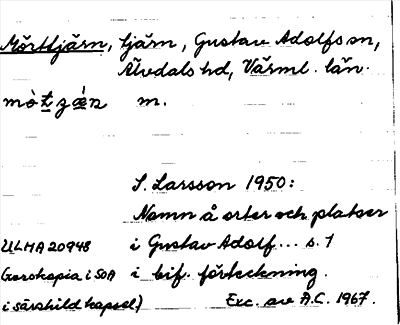 Mörttjärn, tjärn, Gustav Adolfs sn,
Älvdals hd, Värml. län.
m.
S. Larsson 1950:
Namn å orter och platser
ULMA 20948 i Gustav Adolf... s. 1
(xerokopia i SOA i bif. förteckning.
i särskild kapsel) Exc. av A.C. 1967.